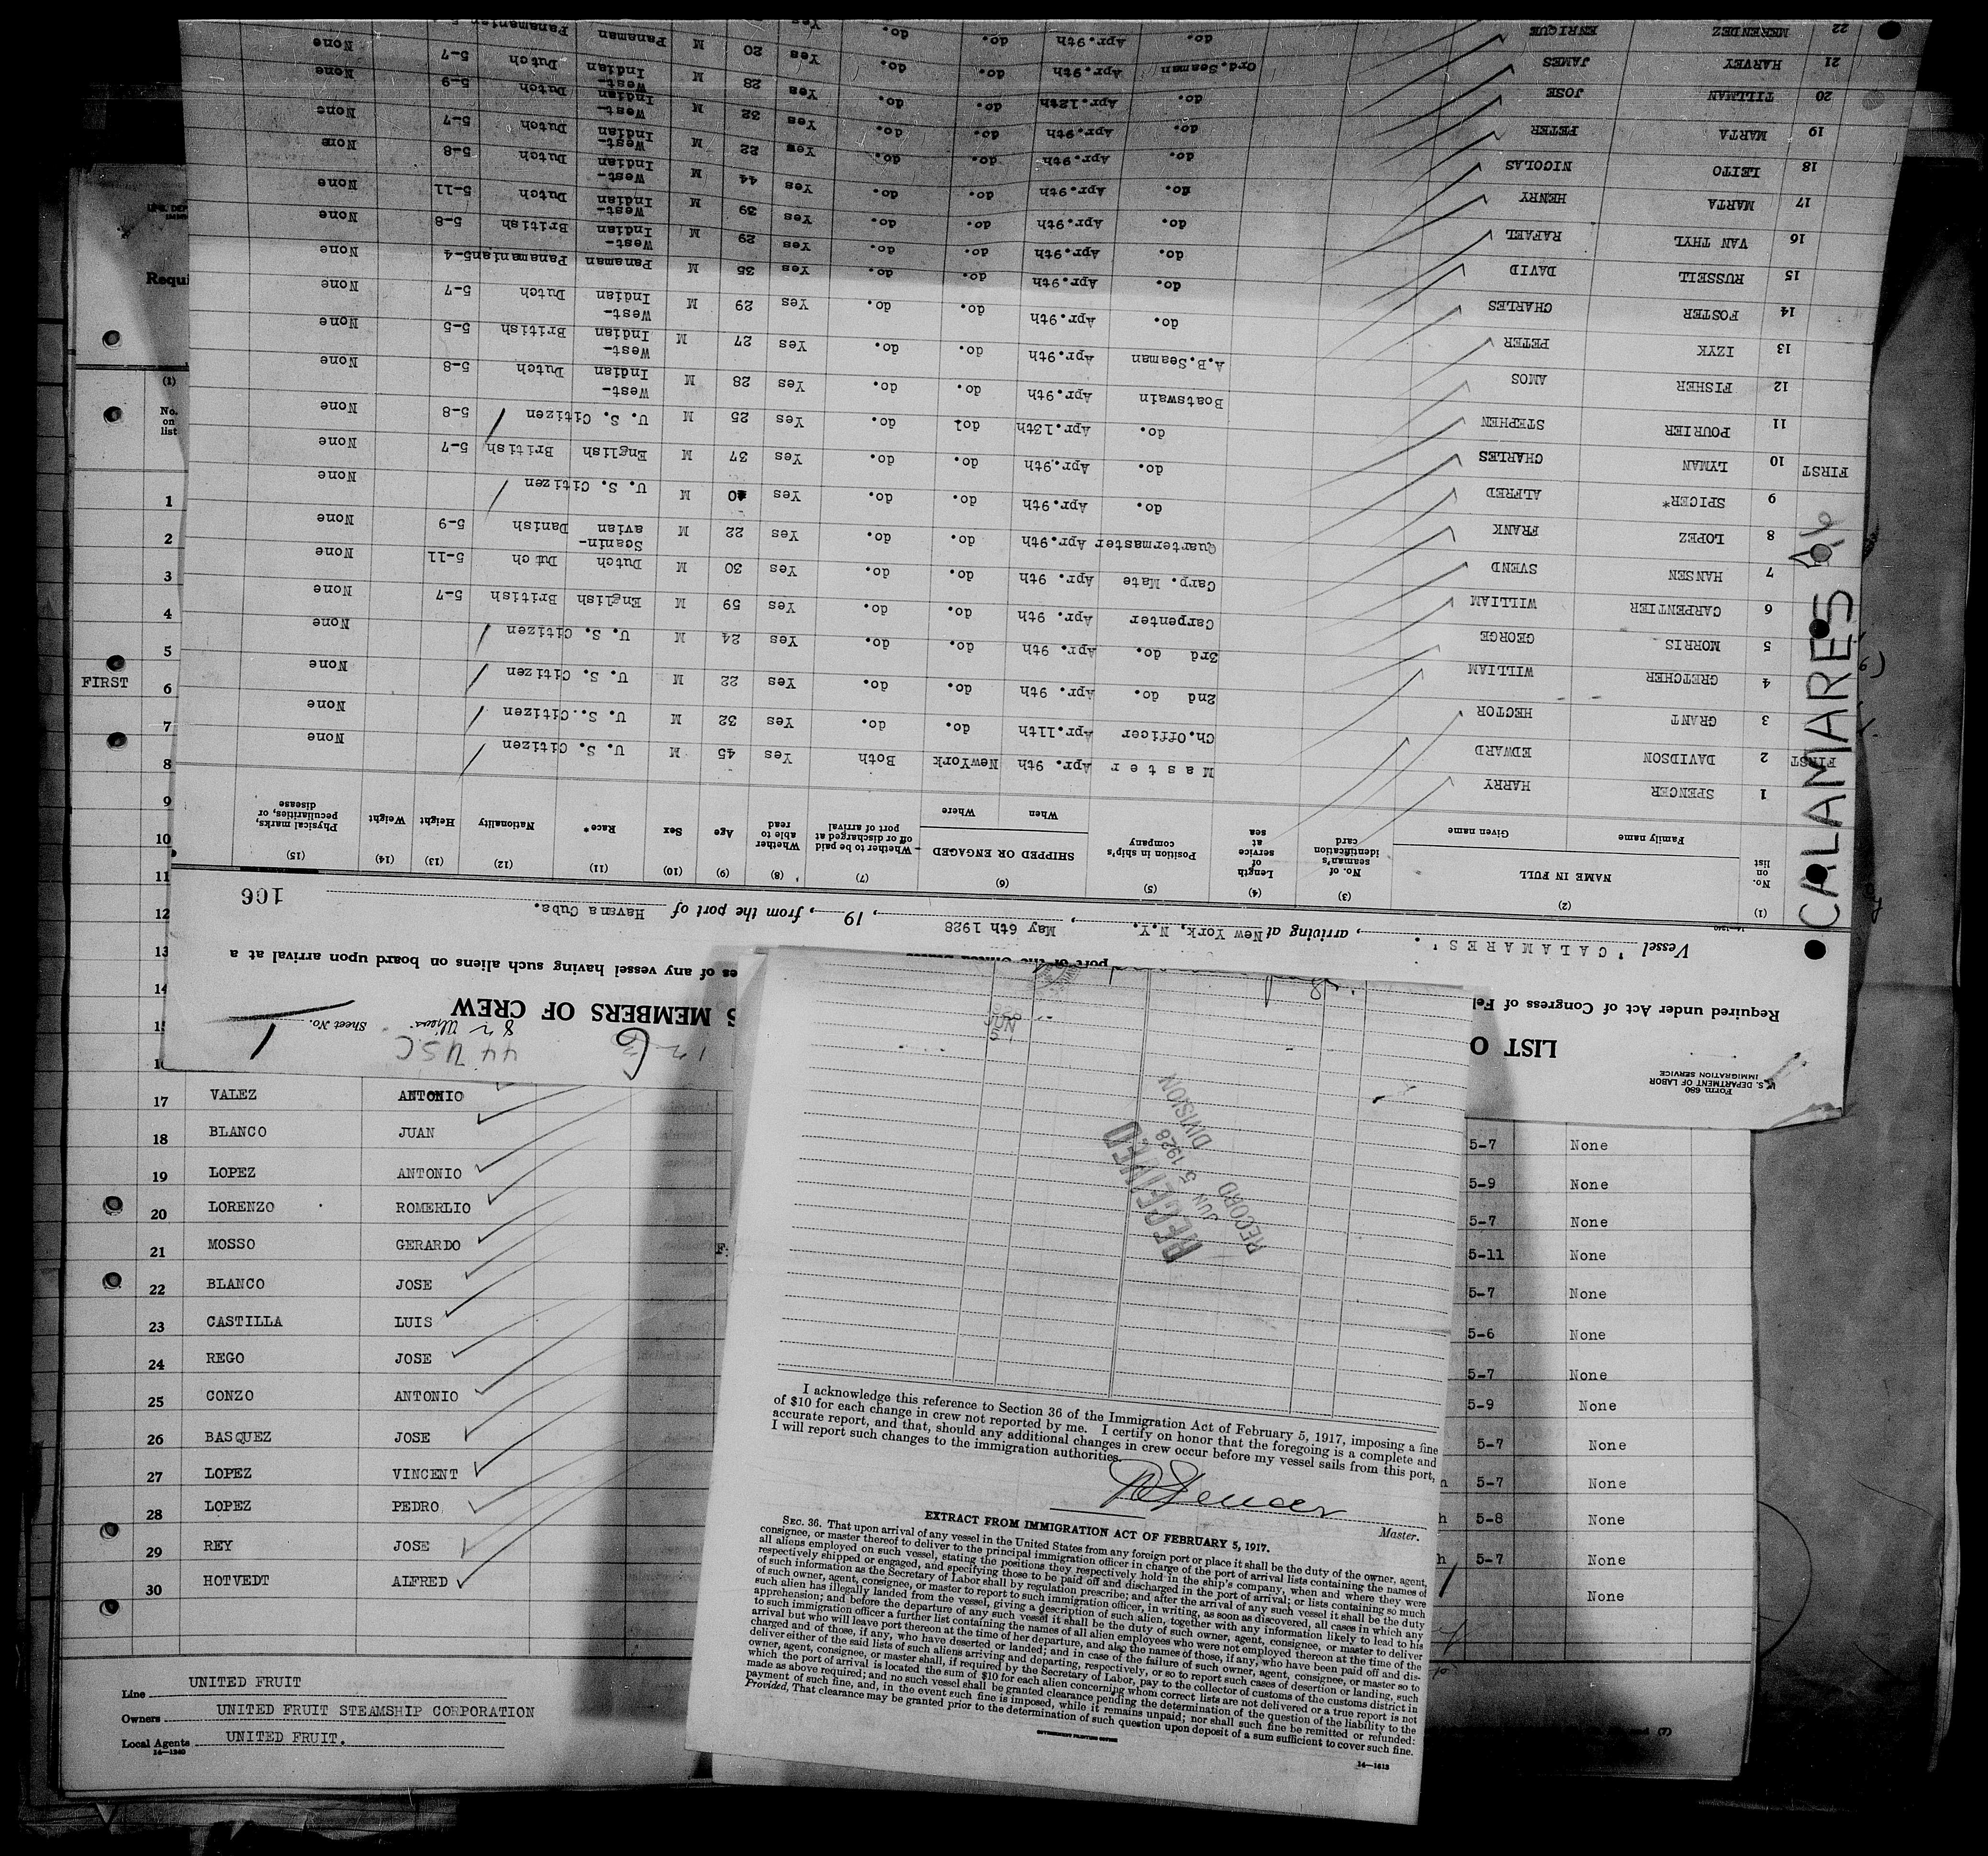 Form 680
U. S. DEPARTMENT OF LABOR
IMMIGRATION SERVICE
LIST O
S MEMBERS OF CREW
44 U.S.C
82 Aliens
126
Sheet No. 1
Required under Act of Congress of Fe
es of any vessel having such aliens on board upon arrival at a
port of the United States
Vessel 'CALAMARES'. , arriving at New York, N.Y. , May 6th 1928 , 19 , from the port of Havana Cuba.
14—1240
166
(1) No. on list
(2) NAME IN FULL Family name Given name
(3) No. of seaman's identification card
(4) Length of service at sea
(5) Position in ship's company
(6) SHIPPED OR ENGAGED When Where
(7) Whether to be paid off or discharged at port of arrival
(8) Whether able to read
(9) Age
(10) Sex
(11) Race*
(12) Nationality
(13) Height
(14) Weight
(15) Physical marks, peculiarities, or disease
1 SPENCER HARRY Master Apr. 9th NewYork Both Yes 45 M U. S. Citizen None
FIRST 2 DAVIDSON EDWARD Ch.Officer Apr.11th do. do. Yes 32 M U. S. Citizen None
3 GRANT HECTOR 2nd do. Apr. 9th do. do. Yes 22 M U. S. Citizen None
4 GRETCHER WILLIAM 3rd do. Apr. 9th do. do. Yes 24 M U. S. Citizen None
5 MORRIS GEORGE Carpenter Apr. 9th do. do. Yes 59 M English British 5-7 None
6 CARPENTIER WILLIAM Carp. Mate Apr. 9th do. do. Yes 30 M Dutch Dutch 5-11 None
7 HANSEN SVEND Quartermaster Apr.9th do. do. Yes 22 M Scanin-avian Danish 5-9 None
8 LOPEZ FRANK do. Apr.9th do. do. Yes 40 M U. S. Citizen None
9 SPICER* ALFRED do. Apr.9th do. do. Yes 37 M English British 5-7 None
FIRST 10 LYMAN CHARLES do. Apr.13th do. do. Yes 25 M U. S. Citizen 5-8 None
11 POURIER STEPHEN Boatswain Apr.9th do. do. Yes 28 M West-Indian Dutch 5-8 None
12 FISHER AMOS A.B.Seaman Apr.9th do. do. Yes 27 M West-Indian British 5-5 None
13 IZYK PETER do. Apr.9th do. do. Yes 29 M West-Indian Dutch 5-7 None
14 FOSTER CHARLES do. Apr.9th do. do. Yes 35 M Panaman Panamanian 5-4 None
15 RUSSELL DAVID do. Apr.9th do. do. Yes 29 M West-Indian British 5-8 None
16 VAN THYL RAFAEL do. Apr.9th do. do. Yes 39 M West-Indian Dutch 5-11 None
17 MARTA HENRY do. Apr.9th do. do. Yes 44 M West-Indian Dutch 5-8 None
18 LEITO NICOLAS do. Apr.9th do. do. Yes 22 M West-Indian Dutch 5-7 None
19 MARTA PETER do. Apr.12th do. do. Yes 32 M West-Indian Dutch 5-9 None
20 TILLMAN JOSE do. Apr.9th do. do. Yes 28 M West-Indian Dutch 5-7 None
21 HARVEY JAMES Ord.Seaman Apr.9th do. do. Yes 20 M Panaman Panamanian None
22 MERENDEZ ENRIQUE do. Apr.9th do. do. Yes
CALAMARES
U. S. DEP
Requi
(1)
No. on list
1
2
3
4
5
FIRST 6
7
8
9
10
11
12
13
14
17 VALEZ ANTONIO 5-7 None
18 BLANCO JUAN 5-9 None
19 LOPEZ ANTONIO 5-7 None
20 LORENZO ROMERLIO 5-11 None
21 MOSSO GERARDO 5-7 None
22 BLANCO JOSE 5-6 None
23 CASTILLA LUIS 5-7 None
24 REGO JOSE 5-9 None
25 CONZO ANTONIO 5-7 None
26 BASQUEZ JOSE 5-7 None
27 LOPEZ VINCENT 5-8 None
28 LOPEZ PEDRO 5-7 None
29 REY JOSE None
30 HOTVEDT ALFRED
Line UNITED FRUIT
Owners UNITED FRUIT STEAMSHIP CORPORATION
Local Agents UNITED FRUIT.
14—1240
RECEIVED
JUN 5 1928
RECORD DIVISION
I acknowledge this reference to Section 36 of the Immigration Act of February 5, 1917, imposing a fine
of $10 for each change in crew not reported by me. I certify on honor that the foregoing is a complete and
accurate report, and that, should any additional changes in crew occur before my vessel sails from this port,
I will report such changes to the immigration authorities.
Master.
EXTRACT FROM IMMIGRATION ACT OF FEBRUARY 5, 1917.
SEC. 36. That upon arrival of any vessel in the United States from any foreign port or place it shall be the duty of the owner, agent,
consignee, or master thereof to deliver to the principal immigration officer in charge of the port of arrival lists containing the names of
all aliens employed on such vessel, stating the positions they respectively hold in the ship's company, when and where they were
respectively shipped or engaged, and specifying those to be paid off and discharged in the port of arrival; or lists containing so much
of such information as the Secretary of Labor shall by regulation prescribe; and after the arrival of any such vessel it shall be the duty
of such owner, agent, consignee, or master to report to such immigration officer, in writing, as soon as discovered, all cases in which any
such alien has illegally landed from the vessel, giving a description of such alien, together with any information likely to lead to his
apprehension; and before the departure of any such vessel it shall be the duty of such owner, agent, consignee, or master to deliver
to such immigration officer a further list containing the names of all alien employees who were not employed thereon at the time of the
arrival but who will leave port thereon at the time of her departure, and also the names of those, if any, who have been paid off and dis-
charged and of those, if any, who have deserted or landed; and in case of the failure of such owner, agent, consignee, or master so to
deliver either of the said lists of such aliens arriving and departing, respectively, or so to report such cases of desertion or landing, such
owner, agent, consignee, or master shall, if required by the Secretary of Labor, pay to the collector of customs of the customs district in
which the port of arrival is located the sum of $10 for each alien concerning whom correct lists are not delivered or a true report is not
made as above required; and no such vessel shall be granted clearance pending the determination of the question of the liability to the
payment of such fine, and, in the event such fine is imposed, while it remains unpaid; nor shall such fine be remitted or refunded:
Provided, That clearance may be granted prior to the determination of such question upon deposit of a sum sufficient to cover such fine.
GOVERNMENT PRINTING OFFICE
14—1413